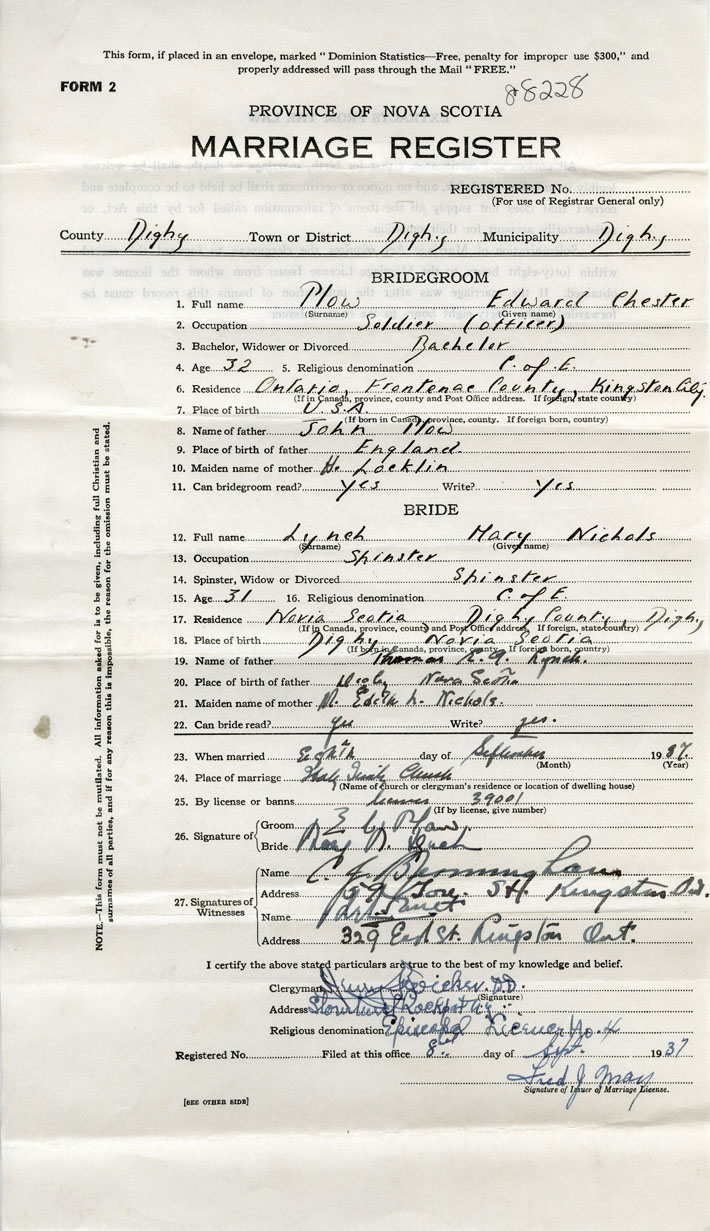 This form, if placed in an envelope, marked "Dominion Statistics—Free, penalty for improper use $300," and
properly addressed will pass through the Mail "FREE."
FORM 2
88228
PROVINCE OF NOVA SCOTIA
MARRIAGE REGISTER
REGISTERED No.
(For use of Registrar General only)
County Digby Town or District Digby Municipality Digby
BRIDEGROOM
1. Full name Plow Edward Chester
(Surname) (Given name)
2. Occupation Soldier (officer)
3. Bachelor, Widower or Divorced Bachelor
4. Age 32 5. Religious denomination C. of E.
6. Residence Ontario, Frontenac County, Kingston City.
(If in Canada, province, county and Post Office address. If foreign, state country)
7. Place of birth U.S.A.
(If born in Canada, province, county. If foreign born, country)
8. Name of father John Plow
9. Place of birth of father England
10. Maiden name of mother H. Locklin
11. Can bridegroom read? yes Write? yes
BRIDE
12. Full name Lynch Mary Nichols
(Surname) (Given name)
13. Occupation Spinster
14. Spinster, Widow or Divorced Spinster
15. Age 31 16. Religious denomination C. of E.
17. Residence Novia Scotia Digby County, Digby
(If in Canada, province, county and Post Office address. If foreign, state country)
18. Place of birth Digby Novia Scotia
(If born in Canada, province, county. If foreign born, country)
19. Name of father Thomas Lynch.
20. Place of birth of father Digby Nova Scotia
21. Maiden name of mother Edith L. Nichols.
22. Can bride read? yes Write? yes.
23. When married Eighth day of September 1937
(Month) (Year)
24. Place of marriage Holy Trinity Church
(Name of church or clergyman's residence or location of dwelling house)
25. By license or banns license 39001
(If by license, give number)
26. Signature of Groom E C Plow
Bride Mary N. Lynch
27. Signatures of Witnesses
Name
Address St. Kingston Ont.
Name
Address 329 Earl St. Kingston Ont.
I certify the above stated particulars are true to the best of my knowledge and belief.
Clergyman D.D.
(Signature)
Address
Religious denomination Episcopal License No. 4
Registered No. Filed at this office 8th day of Sept. 1937
Fred J. May
Signature of Issuer of Marriage License.
[SEE OTHER SIDE]
NOTE.—This form must not be mutilated. All information asked for is to be given, including full Christian and
surnames of all parties, and if for any reason this is impossible, the reason for the omission must be stated.